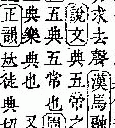 求去聲漢馬融
說文典五帝之
五典五常也
典樂典也又
正韻𠀤徒典切